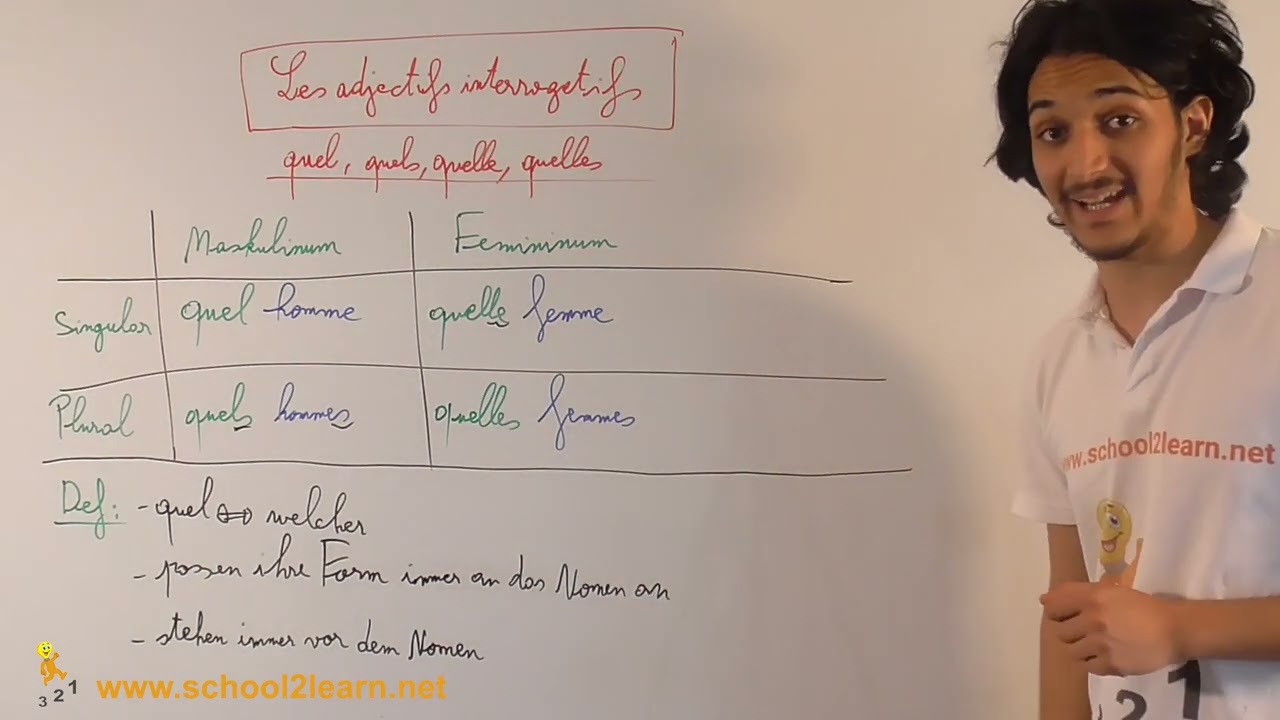 Les adjectifs interrogatifs
quel, quels, quelle, quelles
Maskulinum Femininum
Singular quel homme quelle femme
Plural quels hommes quelles femmes
Def: - quel ⇔ welcher
- passen ihre Form immer an das Nomen an
- stehen immer vor dem Nomen
www.school2learn.net
321
www.school2learn.net
21